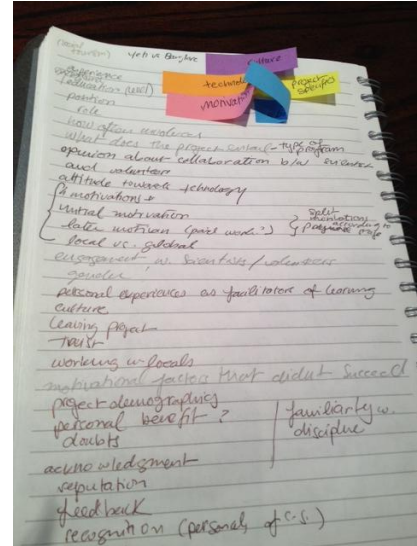 culture
technol
project
specific
motivat
experience
education (level)
position
role
how often involved
what does the project entail - type of program
opinion about collaboration b/w scientists
and volunteers
attitude towards technology
motivations
initial motivation
later motivation (paid work?)
split motivations according to
local vs. global
engagement w. scientists/volunteers
gender
personal experiences as facilitators of learning
culture
leaving project
trust
working w locals
motivational factors that didn't succeed
project demographics
personal benefit?
doubts
familiarity w.
discipline
acknowledgment
reputation
feedback
recognition (personal, of c.s.)